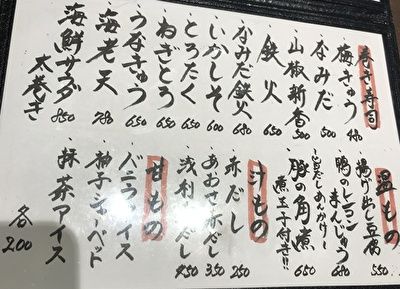 巻き寿司
梅きゅう 480
なみだ 500
山椒新香 500
鉄火 650
なみだ鉄火 680
いかしそ 600
とろたく 650
ねぎとろ 650
うなきゅう 650
海老天 780
海鮮サラダ太巻き 850
温もの
揚げ出し豆腐 550
鴨のレンコンまんじゅう 680
〜七色だしあんかけ〜
豚の角煮 650
煮玉子付き!!
汁もの
赤だし 250
あおさ赤だし 350
浅利赤だし 450
甘もの
バニラアイス
柚子シャーベット
抹茶アイス
各200